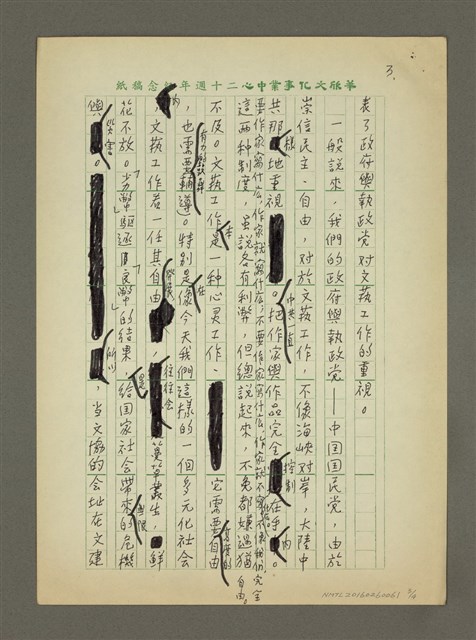 3.
華欣文化事業中心二十週年紀念稿紙
表了政府與執政党对文藝工作的重視。
一般說來，我們的政府與執政党——中国国民党，由於
崇信民主、自由，对於文藝工作，不像海峽对岸，大陸中
共那樣地重視。中共一直把作家與作品完全控制在手內。
要作家寫什么，作家就寫什么；不要作家寫什么，作家就不寫。不像我們完全自由。
這兩种制度，虽說各有利弊，但總說起來，不免都嫌過猶
不及。文藝工作本是一种心灵工作、它需要自由
，也需要有力的輔導。特別是像今天我們這樣的一個多元化社会
內，文藝工作者一任其自由發展，往往会蔓草叢生，鮮
花不放。「劣幣驅逐良幣」的結果，給国家社会帶來無限的危機
與災害。所以，當文協的会址在文建
NMTL20160260061 3/4